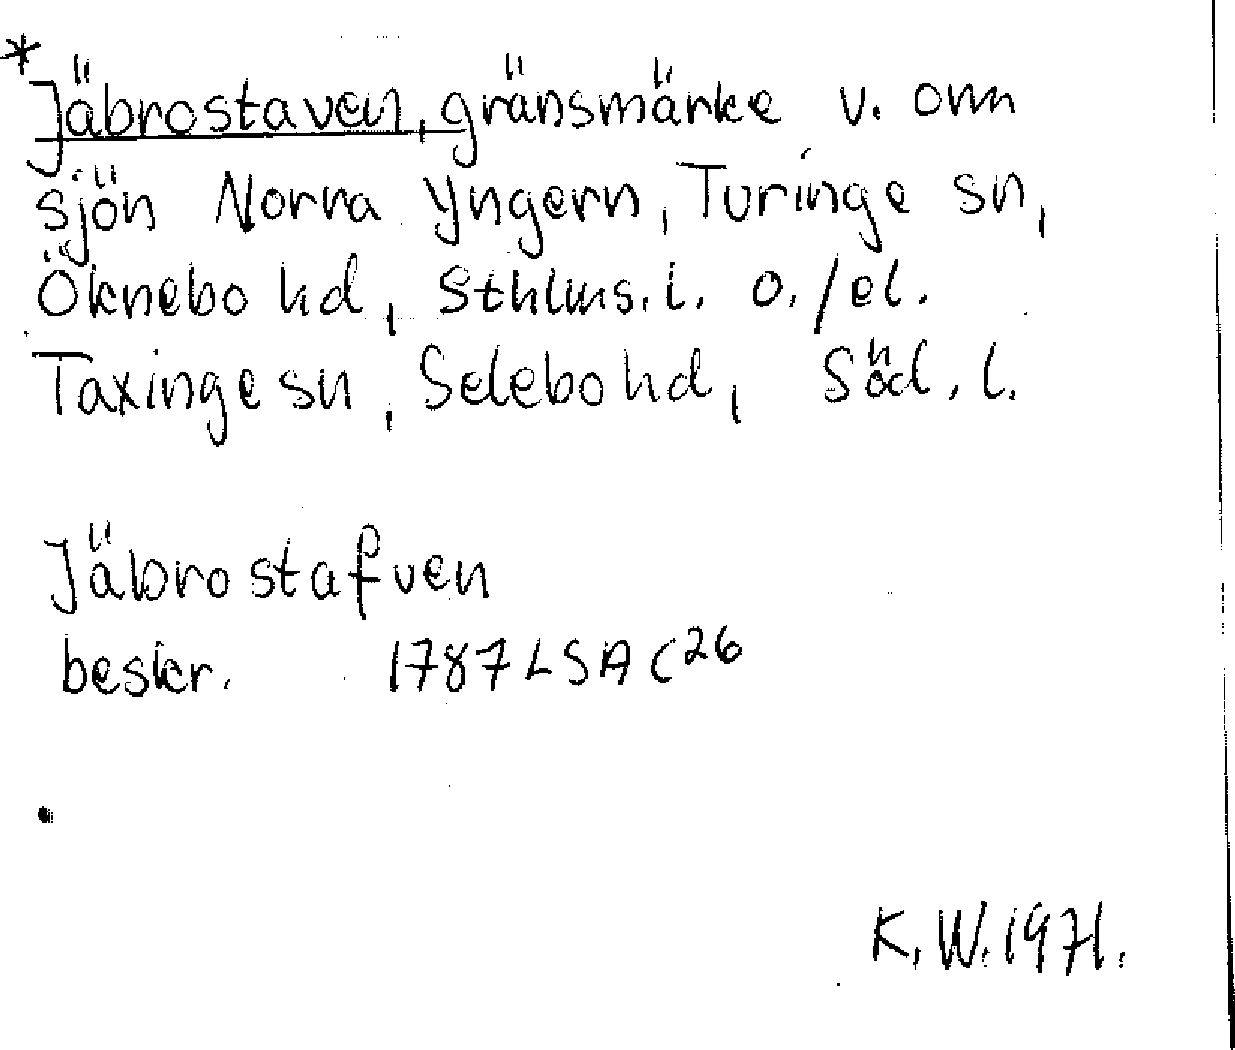 *
Jäbrostaven, gränsmärke v. om
sjön Norra Yngern, Turinge sn,
Öknebo hd, Sthlms. l. o./el.
Taxinge sn, Selebo hd, Söd. l.
Jäbrostafven
beskr. 1787 LSA C26
K. W. 1971.